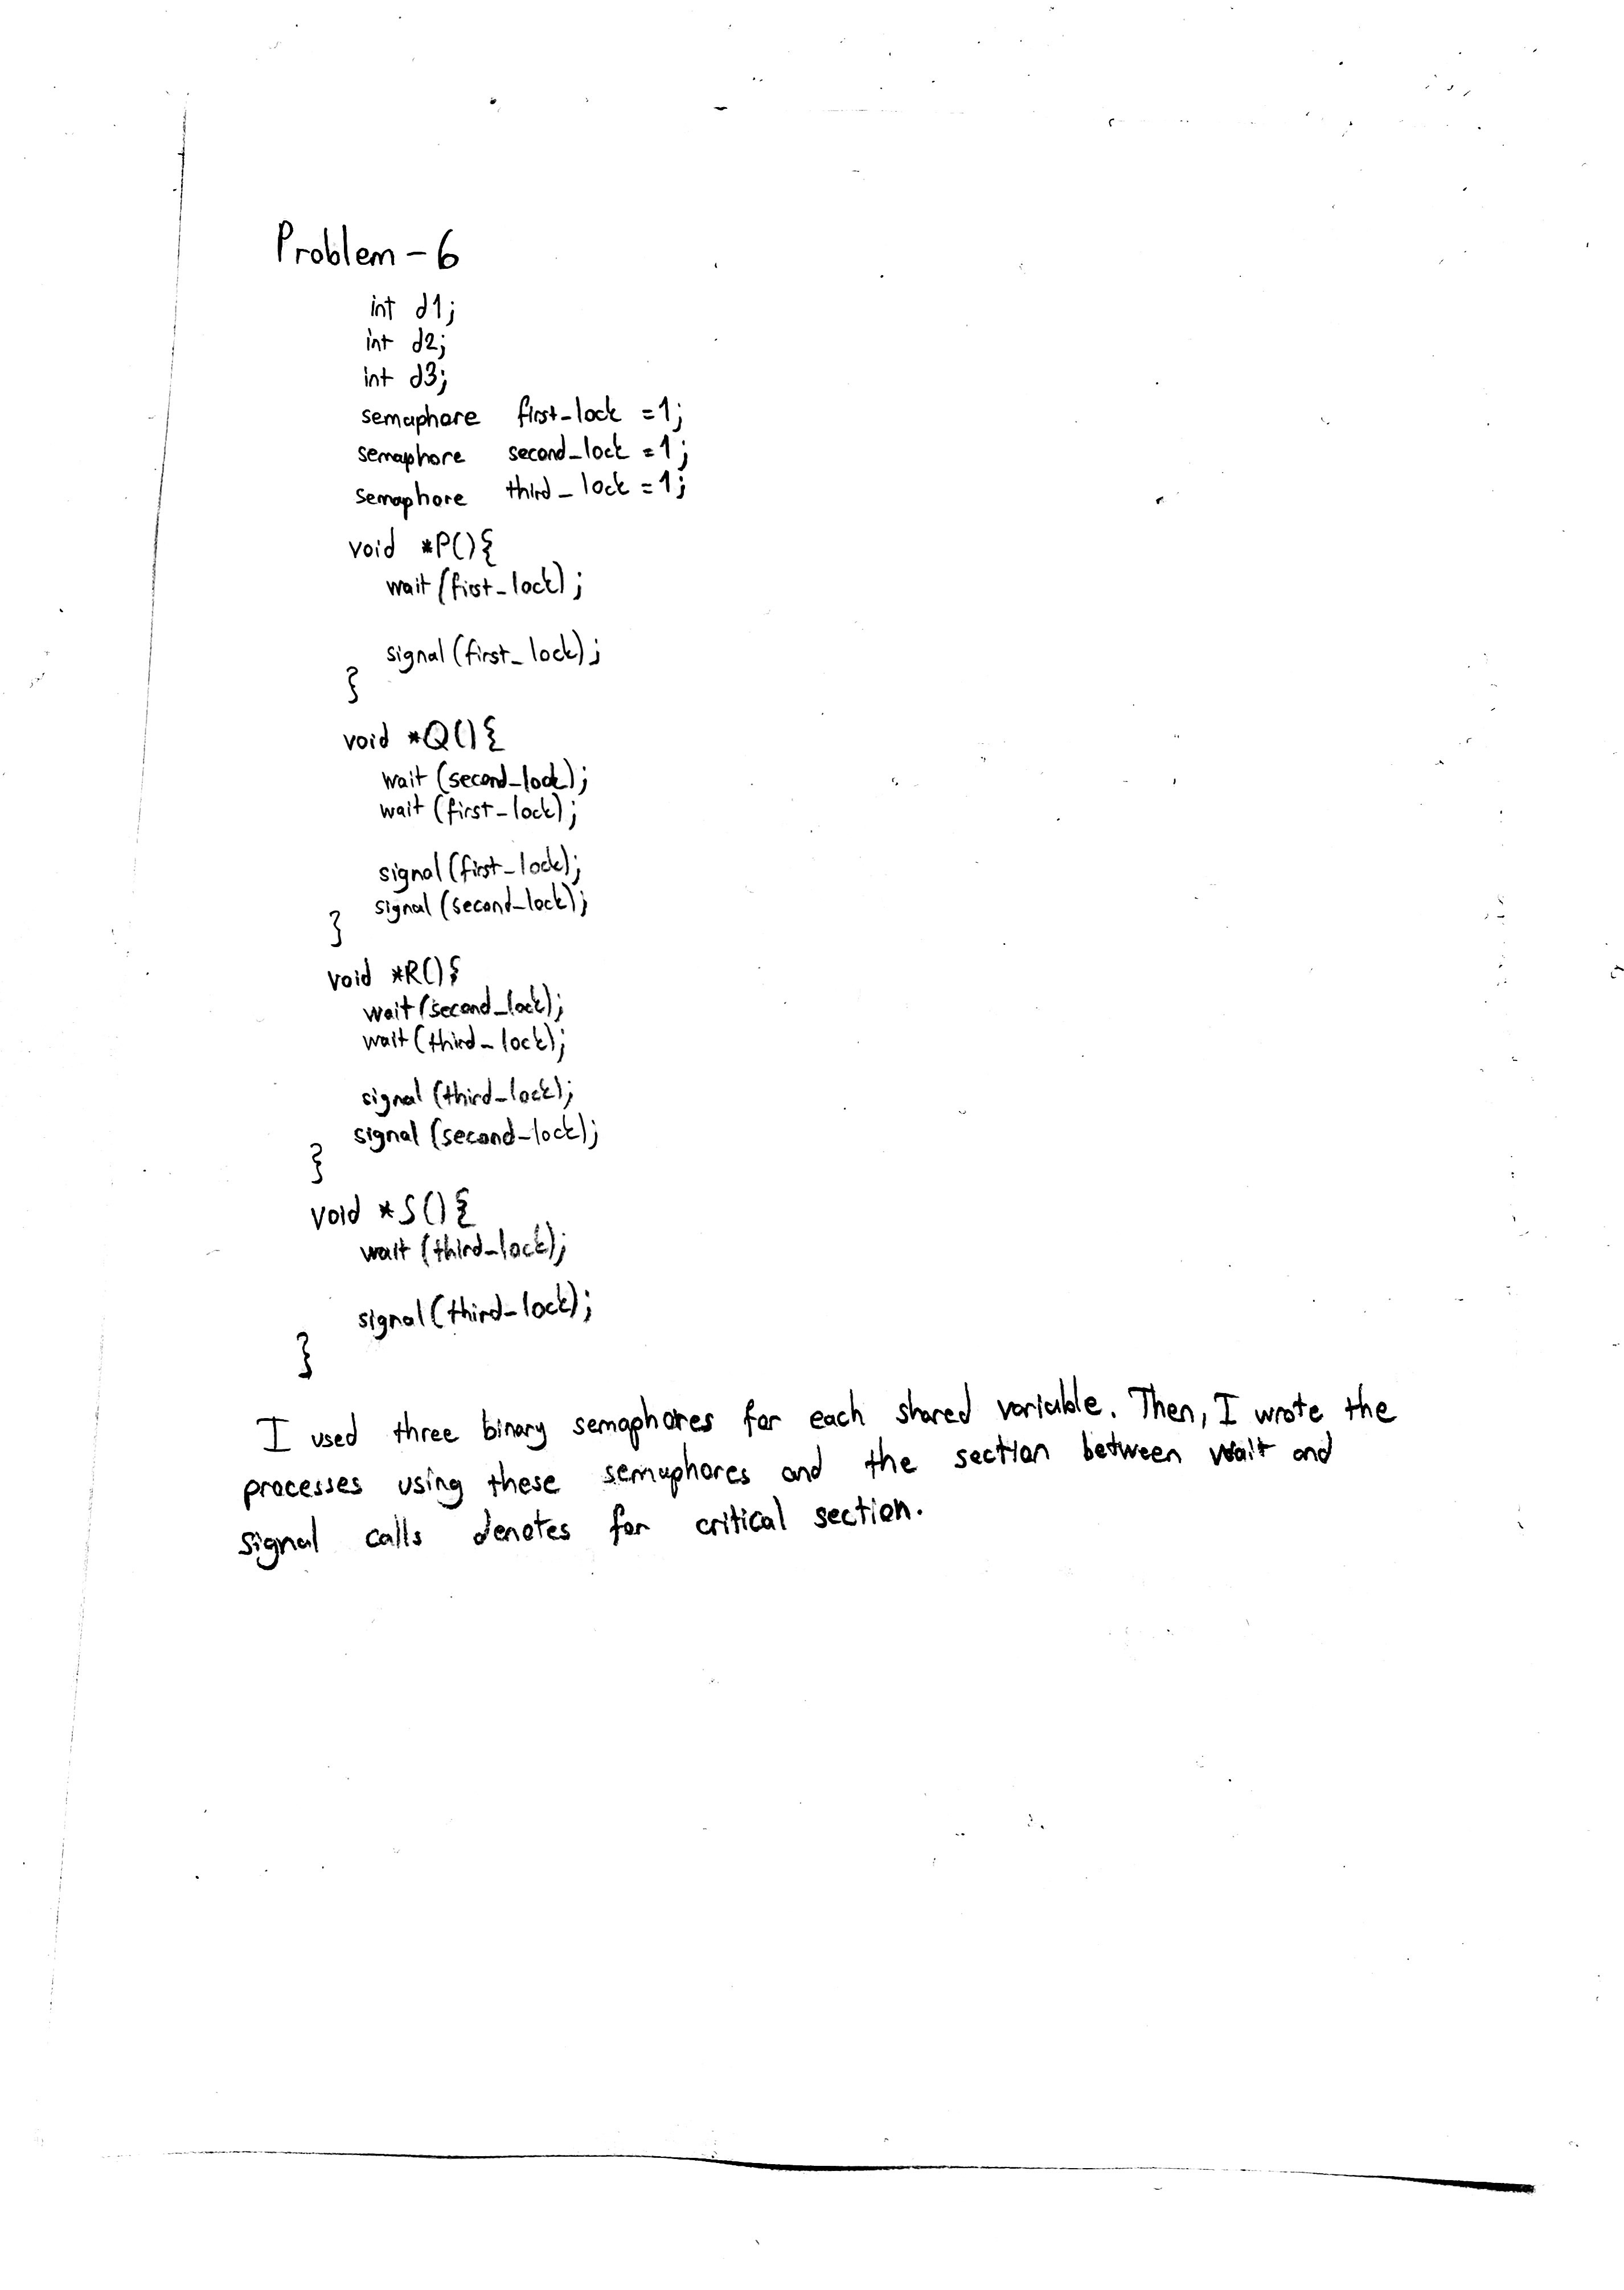 Problem-6
int d1;
int d2;
int d3;
semaphore first_lock =1;
semaphore second_lock =1;
semaphore third_lock =1;
void *P(){
wait(first_lock);
signal(first_lock);
}
void *Q(){
wait(second_lock);
wait(first_lock);
signal(first_lock);
signal(second_lock);
}
void *R(){
wait(second_lock);
wait(third_lock);
signal(third_lock);
signal(second_lock);
}
void *S(){
wait(third_lock);
signal(third_lock);
}
I used three binary semaphores for each shared variable. Then, I wrote the
processes using these semaphores and the section between wait and
signal calls denotes for critical section.